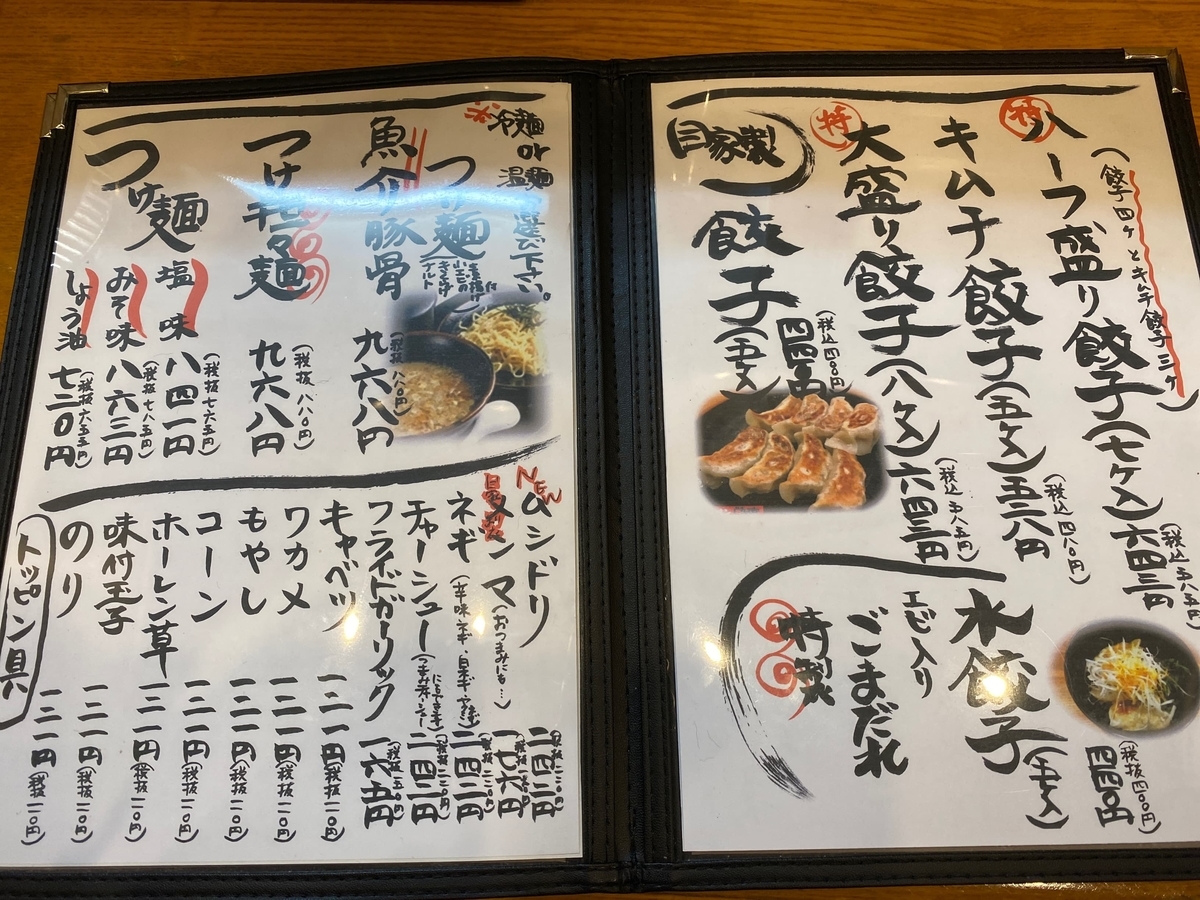 特
ハーフ盛り餃子(七ケ入)六四三円
(餃子四ケとキムチ餃子三ケ)
(税込五八五円)
キムチ餃子(五ケ入)五二八円
(税込四八〇円)
特
大盛り餃子(八ケ入)六四三円
(税込五八五円)
自家製
餃子(五ケ入)
(税込四〇〇円)
四四〇円
水餃子(五ケ入)
四四〇円
(税抜四〇〇円)
エビ入り
ごまだれ
特製
※冷麺
or
温麺
選び下さい。
つけ麺
魚介豚骨
九六八円
(税抜八八〇円)
つけ担々麺
九六八円
(税抜八八〇円)
つけ麺
塩味
八四一円
(税抜七六五円)
みそ味
八六三円
(税抜七八五円)
しょう油
七二〇円
(税抜六五五円)
NEW
ムシドリ
二四二円
メンマ(おつまみにも…)
一七六円
ネギ
二四二円
チャーシュー
二四二円
フライドガーリック
一六五円
キャベツ
一二一円
(税抜一一〇円)
ワカメ
一二一円
(税抜一一〇円)
もやし
一二一円
(税抜一一〇円)
コーン
一二一円
(税抜一一〇円)
ホーレン草
一二一円
(税抜一一〇円)
味付玉子
一二一円
(税抜一一〇円)
のり
一二一円
(税抜一一〇円)
トッピン具